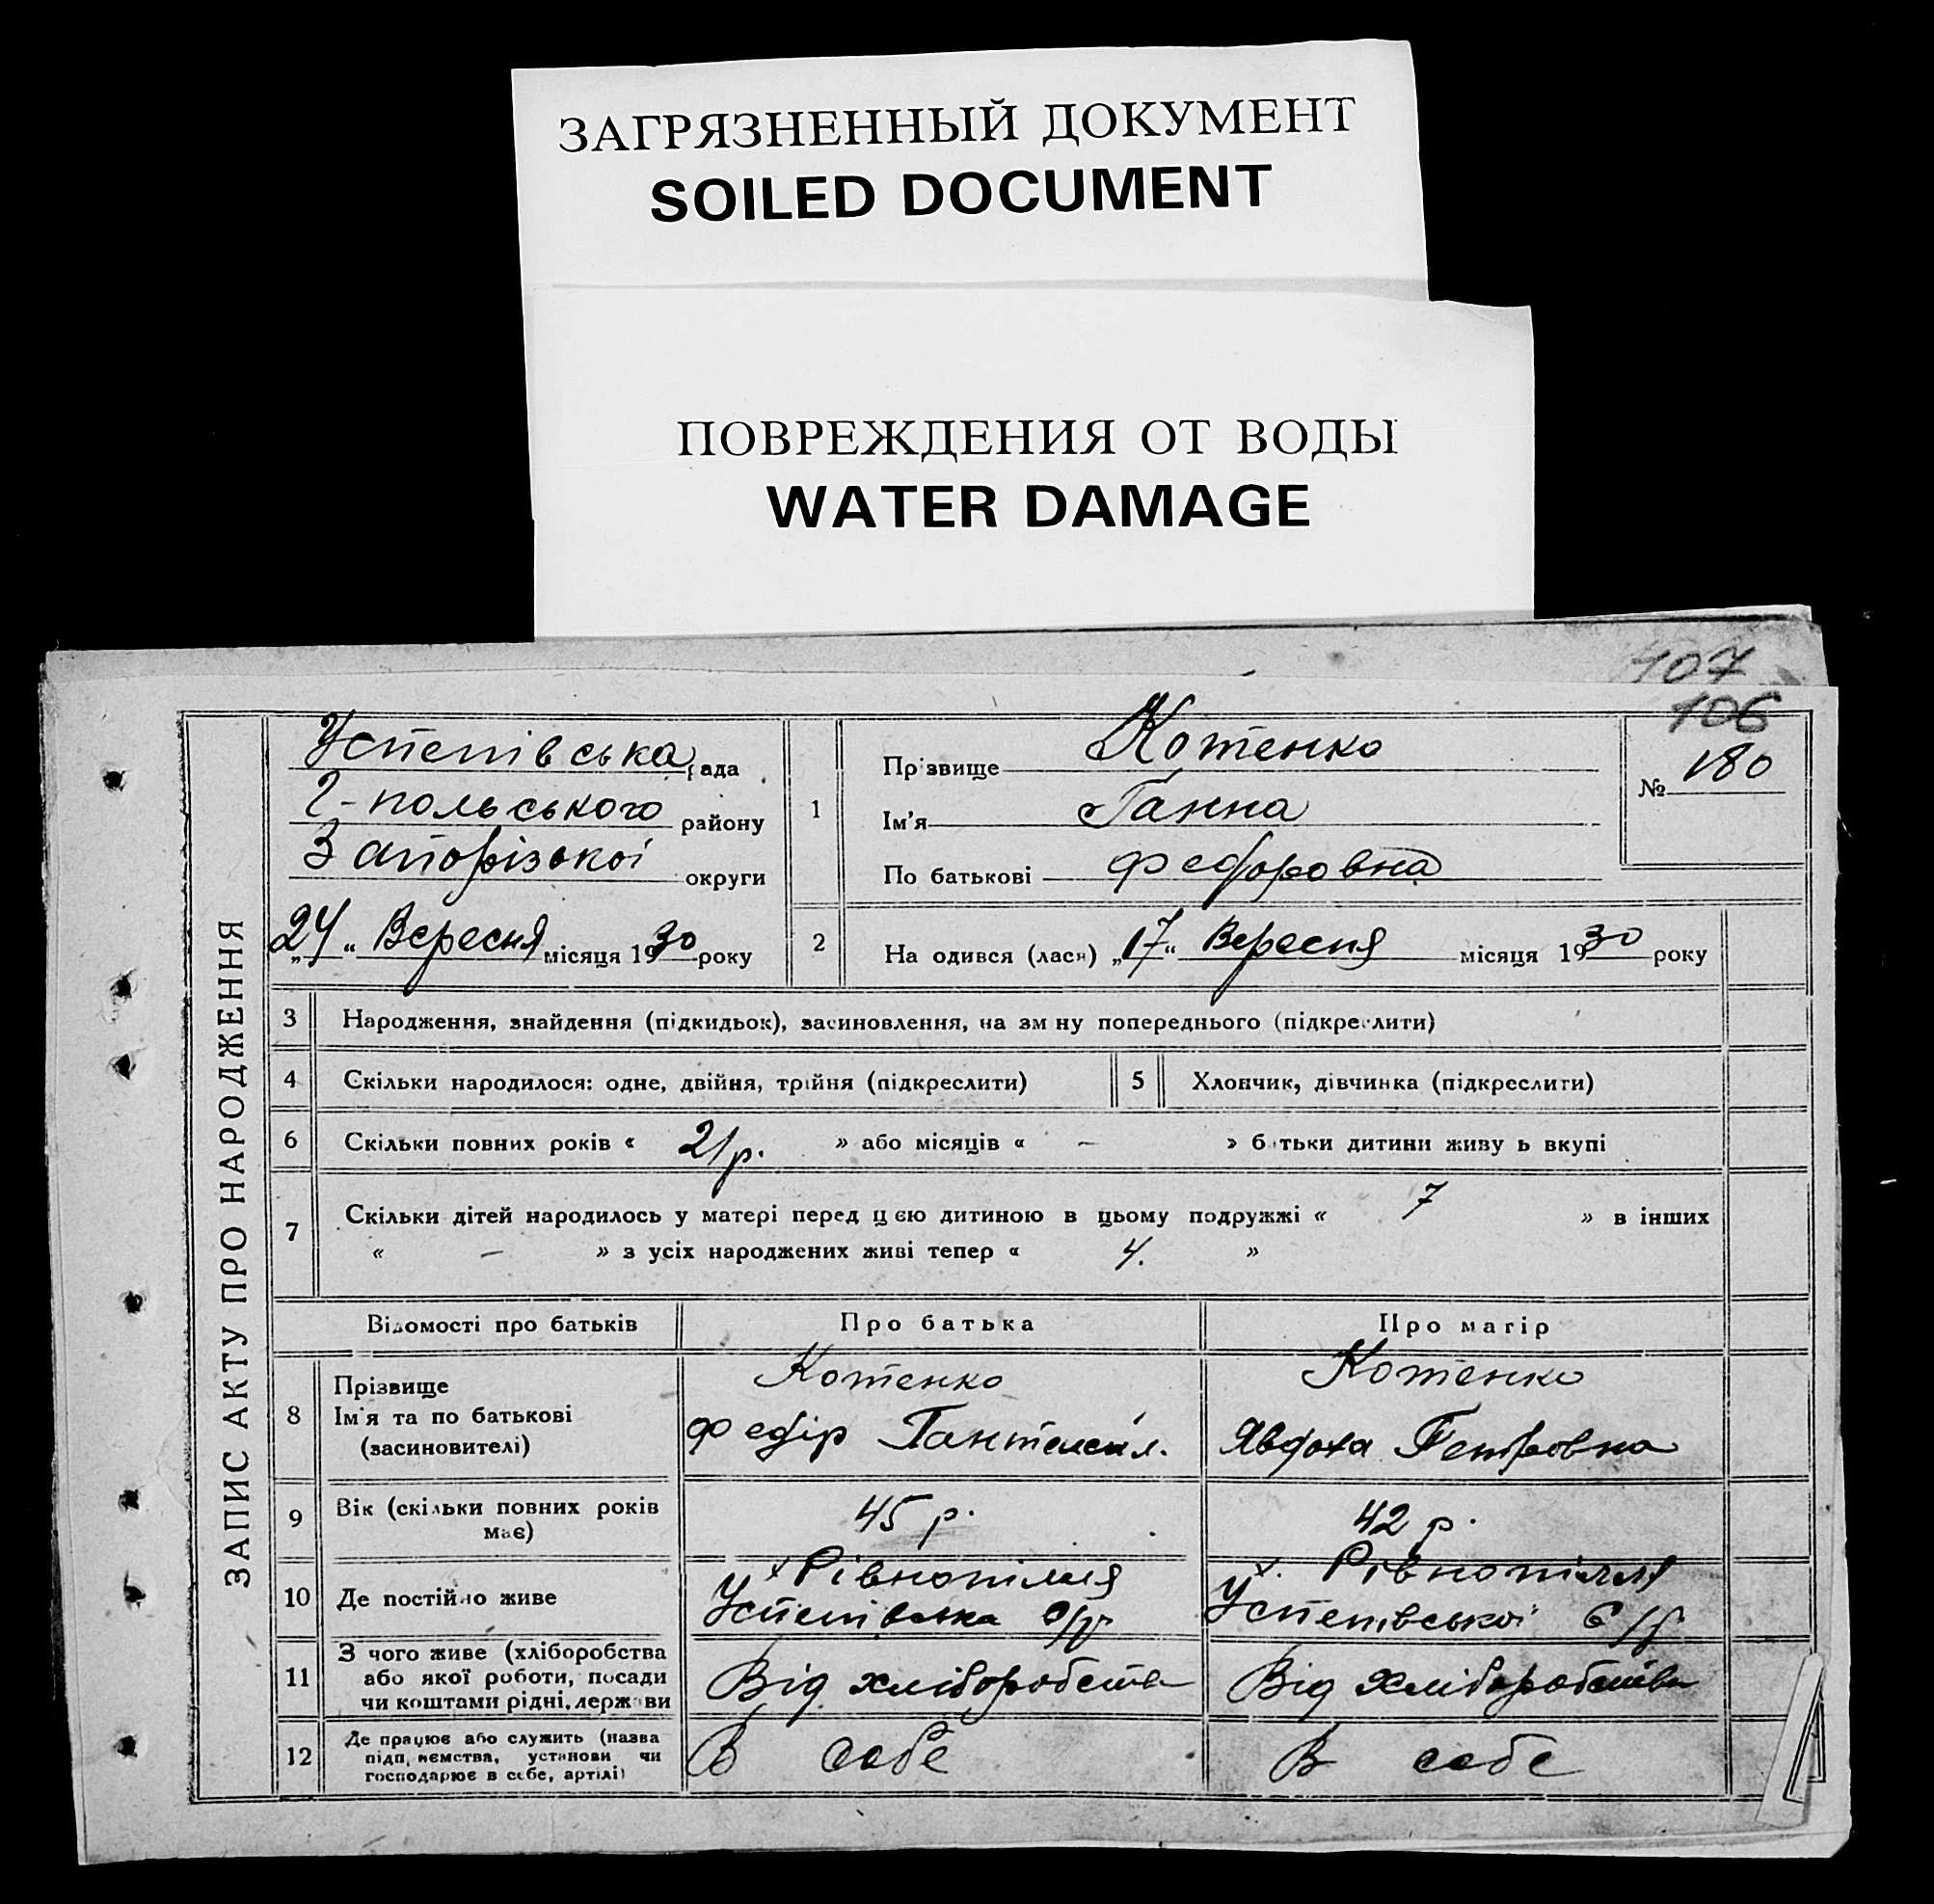 ЗАГРЯЗНЕННЫЙ ДОКУМЕНТ
SOILED DOCUMENT
ПОВРЕЖДЕНИЯ ОТ ВОДЫ
WATER DAMAGE
107
106
ЗАПИС АКТУ ПРО НАРОДЖЕННЯ
Успенівська рада
Г-польського району
Запорізької округи
„24“ Вересня місяця 1930 року
1
Прізвище Котенко
Ім'я Ганна
По батькові Федоровна
№ 180
2 На одився (лася) „17“ Вересня місяця 1930 року
3 Народження, знайдення (підкидьок), засиновлення, на зм ну попереднього (підкреслити)
4 Скільки народилося: одне, двійня, трійня (підкреслити)
5 Хлопчик, дівчинка (підкреслити)
6 Скільки повних років « 21р. » або місяців « – » б тьки дитини живу ь вкупі
7 Скільки дітей народилось у матері перед цєю дитиною в цьому подружжі « 7 » в інших
« – » з усіх народжених живі тепер « 4. »
Відомості про батьків Про батька Про матір
8 Прізвище
Ім'я та по батькові
(засиновителі)
Котенко
Федір Пантелеїл.
Котенко
Явдоха Петровна
9 Вік (скільки повних років
має)
45 р.
42 р.
10 Де постійно живе
х Рівнопілля
Успенівська с/р
х. Рівнопілля
Успенівської с/р
11 З чого живе (хліборобства
або якої роботи, посади
чи коштами рідні, держ ви
Від хліборобства
Від хліборобства
12 Де працює або служить (назва
підп, ємства, установи чи
господарює в себе, артілі)
В себе
В себе